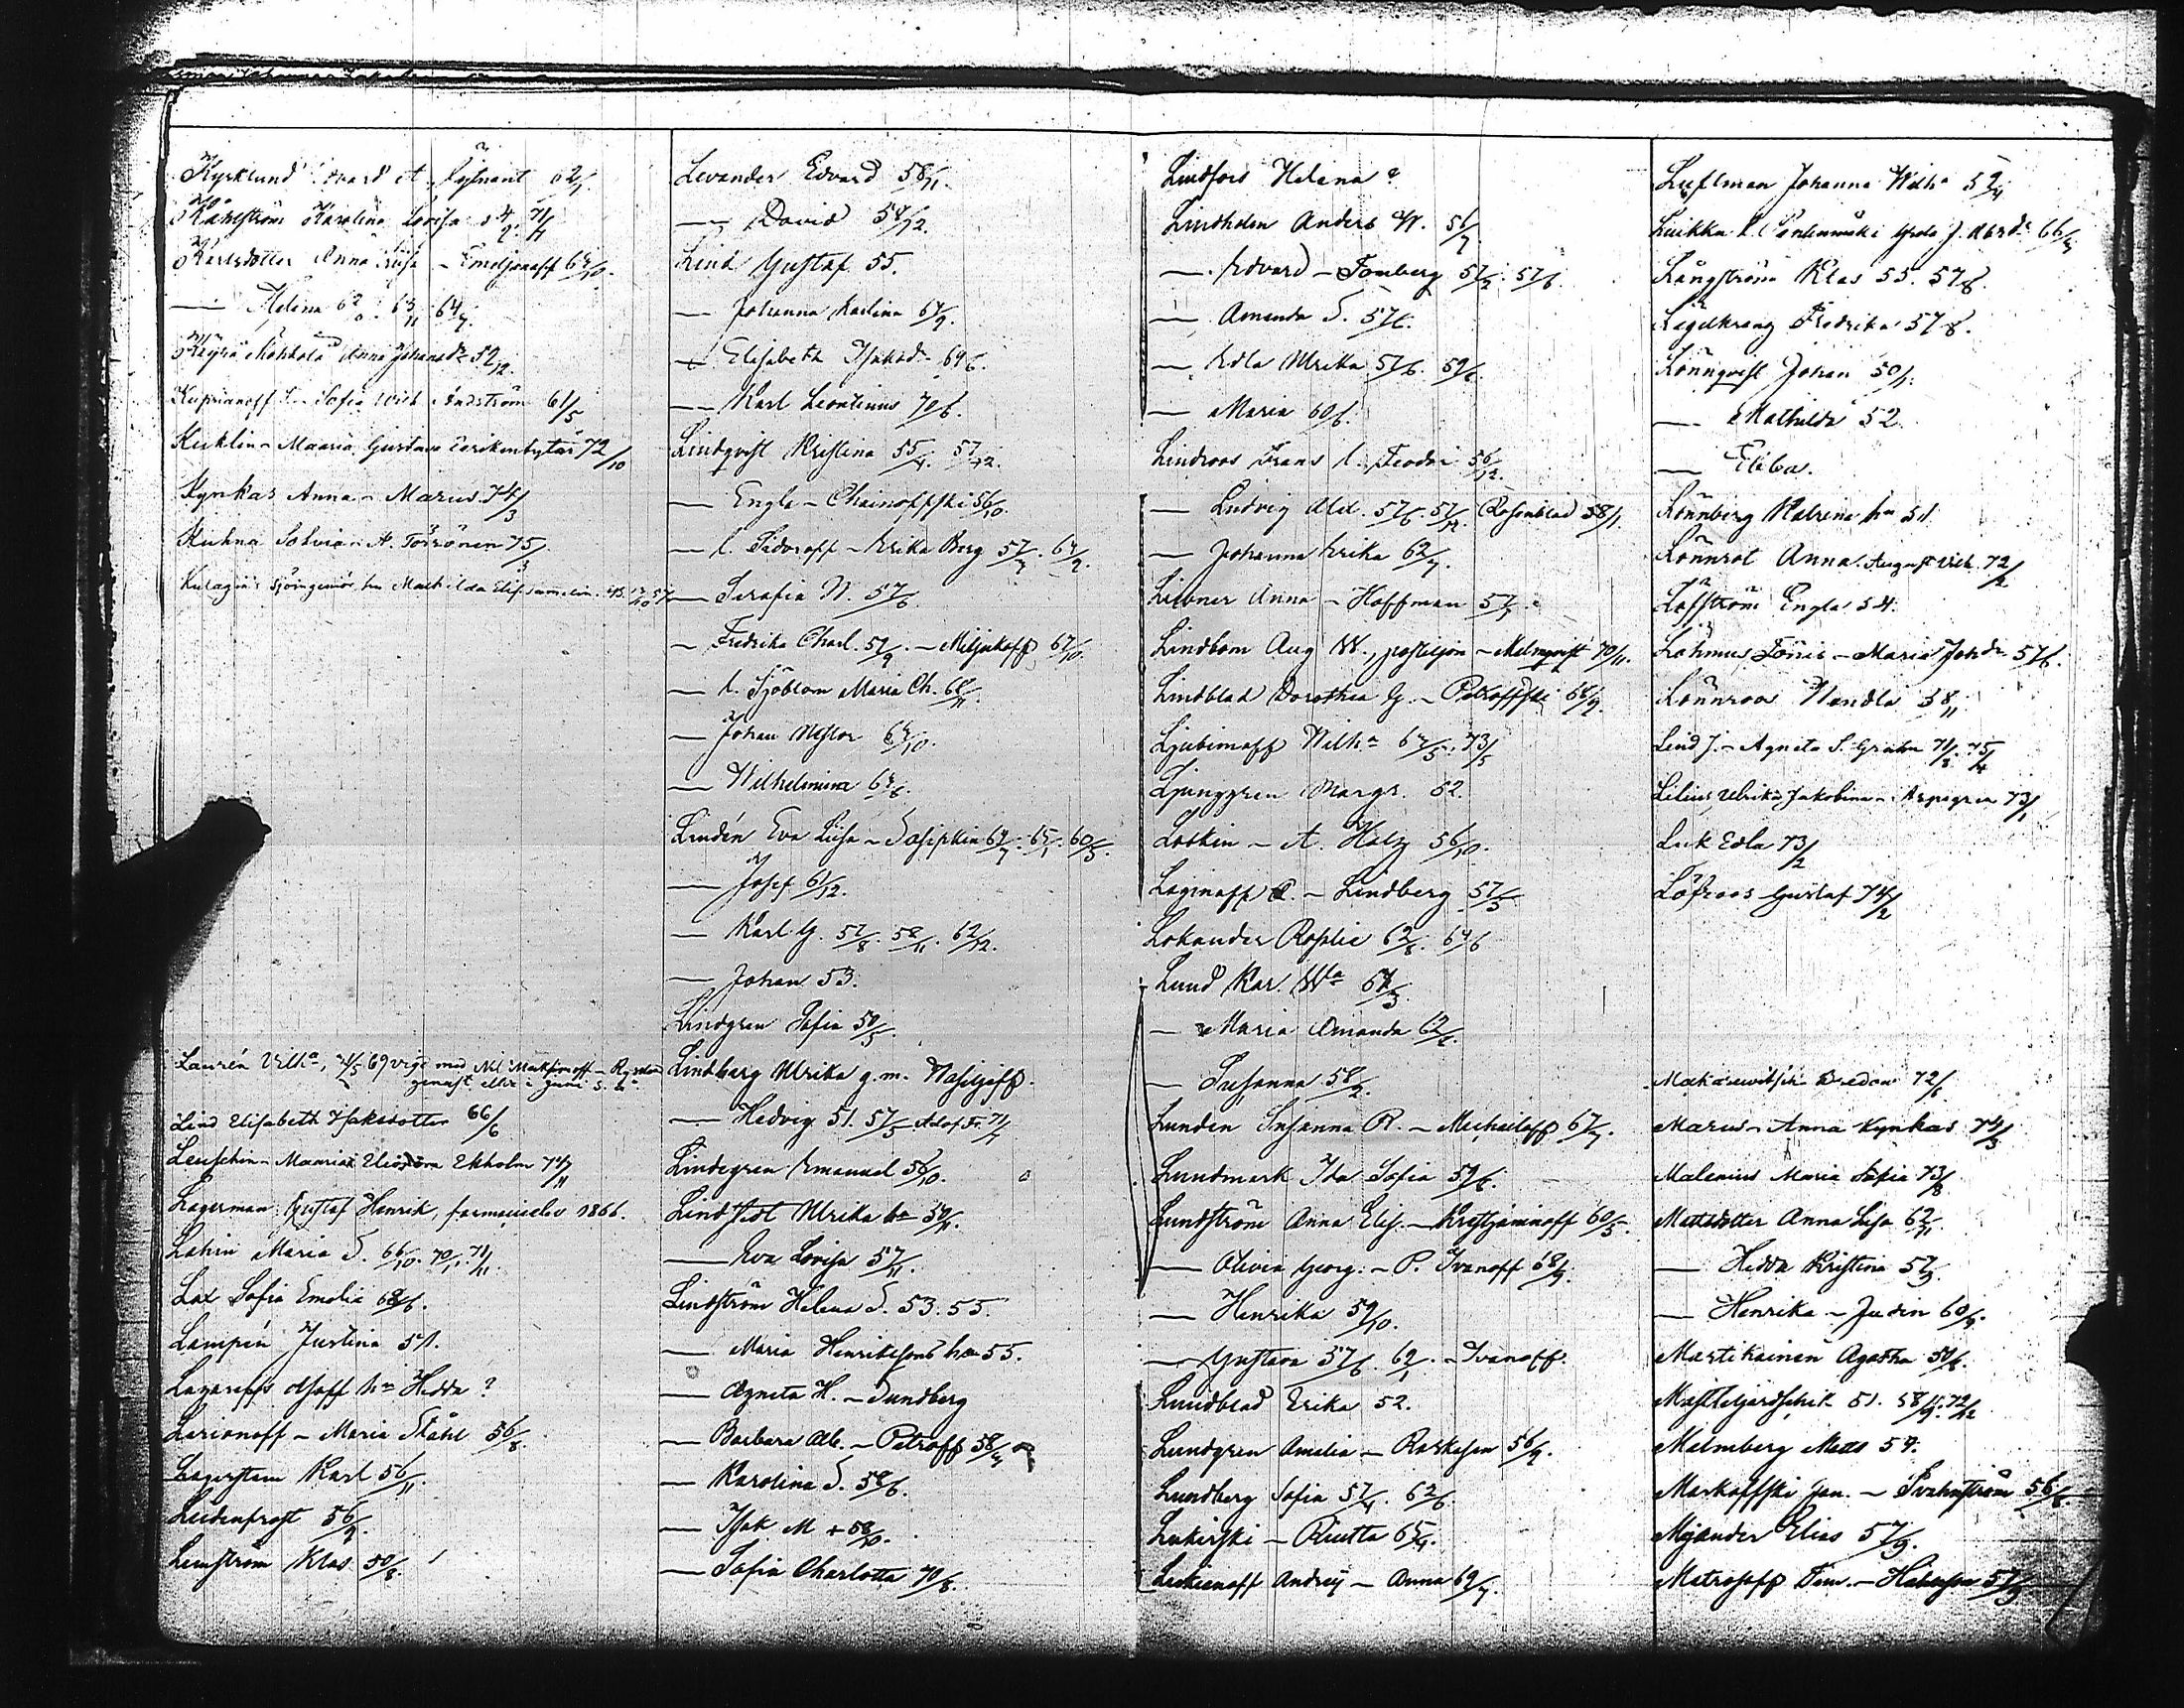 Kyrklund Edvard 62/1
Karlström Karolina Lovisa 71/1
Karlsdotter Anna Lisa - Emeljanoff 64/10.
— Helena 62 63/11 64/7.
Anna Johansdr 52/12
Kuprianoff - Sofia Wilh Andström 61/5
Kuklin - Maaria Gustava Eerikintytär 72/10
Kynkäs Anna - Marus 74/3
Kuhna - A. Törrönen 75/3
Kulagin
Laurén Vilha, 4/5 69 vigd med Nil Maksimoff - Ryssland
genast eller i juni s. å.
Lind Elisabeth Isaksdotter 66/6
Leuschin - Maaria Ekholm 74/11
Lagerman Gustaf Henrik, farmacielev 1866.
Lahin Maria S. 66/10. 70/1. 71/11.
Lax Sofia Emelia 68/6.
Lampén Justina 51.
Lazareffs hu Hedda ?
Larionoff - Maria Ståhl 56/8.
Lagerstam Karl 56/11.
Leidenfrost 56/9.
Lemström Klas 50/8.
Levander Edvard 58/11.
— David 58/12.
Lind Gustaf 55.
— Johanna Karlina 64/9.
— Elisabeth Isaksdr 69/6.
— Karl Leontinus 70/6.
Lindqvist Kristina 55/4. 57/12.
— Engla - Chainoffski 56/10.
— l. Sidoroff - Erika Berg 57/7. 64/9.
— Serafia W. 57/6.
— Fredrika Charl. 57/9. - Miljukoff 67/10
— l. Sjöblom Maria Ch. 68/11.
— Johan Nestor 64/10.
— Wilhelmina 64/6.
Lindén Eva Lisa - Sasipkin 64/7. 65/1. 60/5.
— Josef 61/12.
— Karl G. 57/8. 58/11. 62/12.
— Johan 53.
Lindgren Sofia 50/5.
Lindberg Ulrika g.m. Wasiljeff.
— Hedvig 51. 57/5. Adof. Fr. 71/7
Lindegren Emanuel 56/10.
Lindstedt Ulrika hu 50/11.
— Eva Lovisa 57/11.
Lindström Helena S. 53. 55.
— Maria Henriksons hu 55.
— Agneta H. - Sundberg
— Barbara Alb. - Petroff 58/7
— Karolina S. 58/6.
— Isak M + 58/10.
— Sofia Charlotta 70/8.
Lindfors Helena ?
Lindholm Anders W. 56/7.
— Edvard - Fomberg 57/2. 57/6.
— Amanda S. 57/6.
— Edla Ulrika 57/6. 59/6.
— Maria 60/6.
Lindroos Frans l. Feodor 56/12.
— Ludvig Alex. 57/6. 57/11. Rosenblad 58/1.
— Johanna Erika 62/7.
Anna - Hoffman 57/5.
Lindbom Aug W., postiljon - Malmqvist 70/11.
Lindblad Dorothea G. - Petroffski 68/9.
Ljubimoff Wilha 64/5. 73/5
Ljunggren Margr. 52.
Loskin - A. Holz 56/10.
Loginoff A. - Lindberg 57/5
Lokander Rosalie 62/8. 64/6
Lund Kar. Wa 64/3.
— Maria Amanda 62/6.
— Susanna 58/2.
Lunden Susanna R. - Michailoff 67/7.
Lundmark Ida Sofia 59/6.
Lundström Anna Elis. - Krestjäninoff 60/5.
— Olivia Georg. - P. Ivanoff 68/9.
— Henrika 59/10.
— Gustava 57/6. 62/1. - Ivanoff.
Lundblad Erika 52.
Lundgren Amalia - Raskasen 56/9.
Lundberg Sofia 57/4. 62/6.
Lukirski - Riutta 65/4.
Andrej - Anna 69/7.
Luflman Johanna Wilha 59/4
Luikka l. 66/3
Långström Klas 55. 57/8.
Lägelkrans Fredrika 57/8.
Lönnqvist Johan 50/1.
— Mathilda 52.
— Ebba.
Lönnberg Katrina hu 51.
Lönnrot Anna August Vilh. 72/2
Löfström Engla 54.
Löhmus Tönis - Maria Johdr 57/6.
Lönnroos Wendla 58/11
Lind J. - Agneta S. Grahn 71/3. 75/4
Lilius Ulrika Jakobina - Aspegren 73/1
Luk Edla 73/2
Löfroos Gustaf 74/2
Makarewitsch Fredor 72/6
Marus - Anna Kynkäs 74/3
Malenius Maria Sofia 73/8
Mattsdotter Anna Lisa 62/11
— Hedda Kristina 57/9.
— Henrika - Judin 60/9.
Martikainen Agatha 50/6.
51. 58/9. 72/12
Malmberg Matts 59.
Markoffski Jan. - Svahnström 56/6.
Mejander Elias 57/9.
Matrosoff Tim. - 57/9